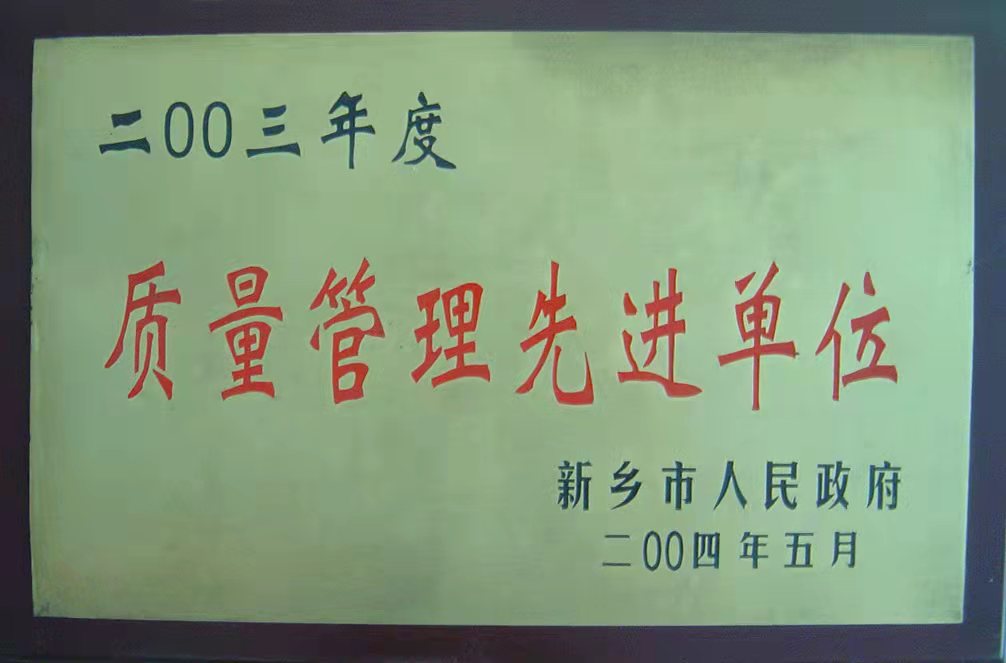 二00三年度
质量管理先进单位
新乡市人民政府
二00四年五月